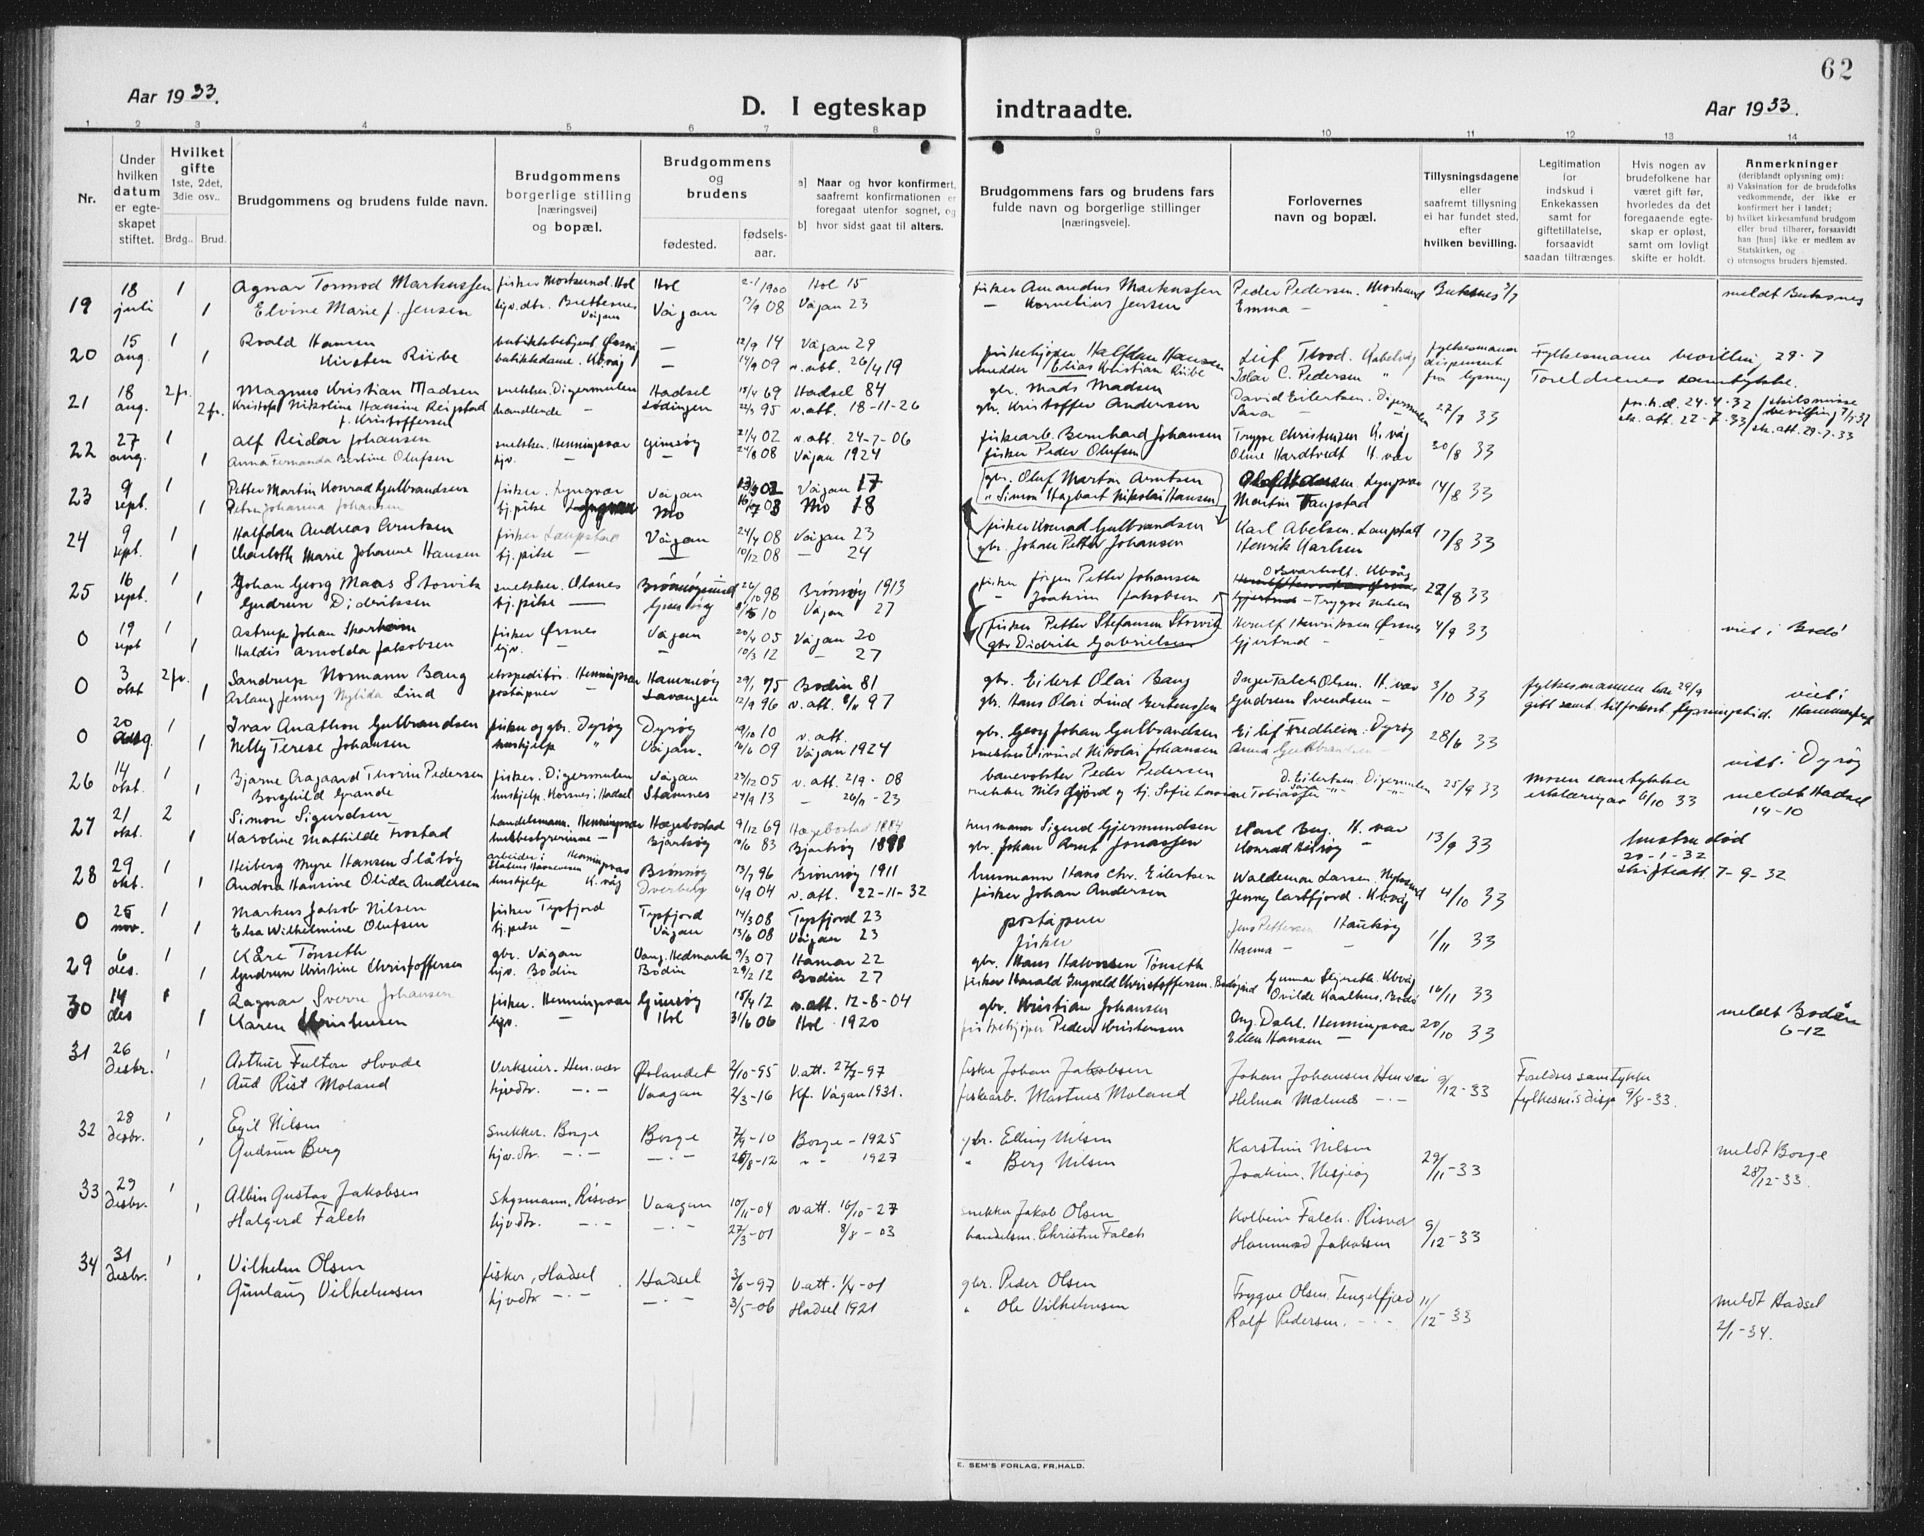 62
Aar 1933.
D. I egteskap indtraadte.
Aar 1933.
1 2 3 4 5 6 7 8 9 10 11 12 13 14
Nr.
Under hvilken datum er egteskapet stiftet.
Hvilket gifte
1ste, 2det, 3die osv..
Brdg.. Brud.
Brudgommens og brudens fulde navn.
Brudgommens borgerlige stilling [næringsvei] og bopæl.
Brudgommens og brudens
fødested.
fødsels-aar.
a] Naar og hvor konfirmert, saafremt konfirmationen er foregaat utenfor sognet, og
b] hvor sidst gaat til alters.
Brudgommens fars og brudens fars fulde navn og borgerlige stillinger [næringsveie].
Forlovernes navn og bopæl.
Tillysningsdagene eller saafremt tillysning ei har fundet sted, efter hvilken bevilling.
Legitimation for indskud i Enkekassen samt for giftetillatelse, forsaavidt saadan tiltrænges.
Hvis nogen av brudefolkene har været gift før, hvorledes da det foregaaende egteskap er opløst, samt om lovligt skifte er holdt.
Anmerkninger (deriblandt oplysning om):
a) Vaksination for de brudefolks vedkommende, der ikke er konfirmert her i landet;
b) hvilket kirkesamfund brudgom eller brud tilhører, forsaavidt han [hun] ikke er medlem av Statskirken, og
c) utensogns bruders hjemsted.
19 18 juli 1 Agnar Tormod Markussen fisker Mortsund. Hol Hol 2-1/1900 Hol 15 fisker Amandus Markussen Peder Pedersen. Mortsund Buksnes 2/7 meldt Buksnes
1 Elvine Marie f. Jensen hjv. dtr. Brettesnes Vågan Vågan 13/9 08 Vågan 23 — Kornelius Jensen Emma —
20 15 aug. 1 Roald Hansen butikkbetjent — 12/9 14 Vågan 29 fiskekjøper Halfdan Hansen Leif Tvod. Kabelvåg fylkesmannen dispensert fra lysning Fylkesmann bevilling 29-7
1 Kirsten Riibe butikkdame. K.våg — 14/9 09 v. att. 26/4 19 Elias Kristian Riibe C. Pedersen " Foreldrenes samtykke.
21 18 aug. 2 fr. Magnus Kristian Madsen snekker. Digermulen Hadsel 15/4 69 Hadsel 84 gbr. Mads Madsen David Eilertsen. Digermulen 27/7 33
2 fr. Kristofa Nikoline Hansine Reigstad f. Kristoffersen handlende — Lødingen 22/3 95 v. att. 18-11-26 gbr. Kristoffer Andersen Sara — —
22 27 aug. 1 Alf Reidar Johansen snekker. Henningsvær Gimsøy 21/4 02 v. att. 24-7-06 fiskearb. Bernhard Johansen Trygve Christensen K.våg 20/8 33
1 Anna Fernanda Bertine Olufsen hjv. — 24/8 08 Vågan 1924 fisker Peder Olufsen Oline Hardtvedt H.vær
23 9 sept. 1 Petter Martin Konrad Gulbrandsen fisker. Lyngvær Vågan 02 Vågan 17 gbr. Oluf Martin Arntsen Lyngvær 14/8 33
1 Petra Johanna Johansen tj. pike Lyngvær Mo 08 Mo 18 " Simon Hagbart Nikolai Hansen Martin Taugstad
24 9 sept. 1 Halfdan Andreas Arntsen fisker Laupstad Vågan 24/4 08 Vågan 23 fisker Konrad Gulbrandsen Karl Abelsen. Laupstad 17/8 33
1 Charlotte Marie Johanne Hansen tj. pike — — 10/12 08 — 24 gbr. Johan Petter Johansen Henrik Karlsen
25 16 sept. 1 Johan Georg Maas Storvik snekker. Olsnes Brønnøysund 26/10 98 Brønnøy 1913 fisker Jørgen Petter Johansen 22/8 33
1 Gudrun Didriksen tj. pike — Gimsøy 10 Vågan 27 " Joakim Jakobsen Trygve Nilsen
0 19 sept 1 Astrup Johan Skarheim fisker Ørsnes Vågan 20/4 05 Vågan 20 fisker Petter Stefansen Storvik Herulf Henriksen Ørsnes 4/9 33 viet i Bodø
1 Haldis Arnolda Jakobsen hjv. — — 10/3 12 — 27 gbr Didrik Gabrielsen Gjertrud —
0 3 okt 2 fr. Sandrup Normann Bang ekspeditør. Henningsvær Hammerøy 29/1 75 Bodin 81 gbr. Eilert Olai Bang Inga Falch Olsen. H.vær 3/10 33 fylkesmannen har 29/9 viet i
1 Arlaug Jenny Nylida Lind poståpner — Lavangen 12/9 96 v. att. 8/11 97 gbr. Hans Olai Lind Gertinssen Gudrun Svendsen — gitt samt. til forkort. lysningstid. Hammerfest
0 20 aug. 1 Ivar Anathon Gulbrandsen fisker og gbr. Dyrøy Dyrøy 19/10 10 v. att. gbr. Georg Johan Gulbrandsen Eilef Fredheim. Dyrøy 28/6 33
1 Nelly Terese Johansen hushjelp " Vågan. 16/6 09 Vågan 1924 Eivind Nikolai Johansen Anna Gulbrandsen — viet i Dyrøy
26 14 okt. 1 Bjarne Aagaard Thorin Pedersen fisker. Digermulen Vågan 23/12 05 v. att. 21/9-08 banevokter Peder Pedersen D. Eilertsen. Digermulen 25/9 33 moren samtykke
1 Borghild Grande hushjelp. Korsnes i Hadsel Stamnes 24/9 13 — 26/11-23 snekker Nils Gjord og tj. Sofie Lovise Tobiassen Sara — erklæring av 6/10 33 meldt Hadsel 14-10
27 21 okt. 2 Simon Sigurdsen handelsmann. Henningsvær Hægebostad 9/12 69 Hægebostad 1884 husmann Sigurd Gjermundsen Karl Berg. H.vær 13/9 33 hustru død 20-1-32
1 Karoline Mathilde Frostad husbestyrerinne — Bjarkøy 10/6 83 Bjarkøy 1898 gbr. Johan Arnt Jonassen Konrad — skifteatt. 7-9-32
28 29 okt. 1 Heiberg Myre Hansen Slåtøy arbeider i Statens Havnevesen Henningsvær Brønnøy 13/7 96 Brønnøy 1911 husmann Hans Chr. Eilertsen Waldemar Larsen. Nyksund 4/10 33
1 Andora Hansine Olida Andersen hushjelp K.våg Dverberg 6/9 04 v. att. 22-11-32 fisker Johan Andersen Jenny Cartfjord. K.våg
0 25 nov. 1 Markus Jakob Nilsen fisker Tysfjord Tysfjord 14/3 08 Tysfjord 23 poståpner Jens Pettersen Haukøy 1/11 33
1 Elsa Wilhelmine Olufsen tj. pike — Vågan 13/6 08 Vågan 23 fisker Hanna — —
29 6 des. 1 Kåre Tønseth gbr. Vågan Vang. Hedmark 9/3 07 Hamar 22 gbr. Hans Halvorsen Tønseth Gunnar K.våg 16/11 33
1 Gudrun Kristine Christoffersen hjv. Bodin Bodin 29/2 12 Bodin 27 fisker Harald Ingvald Christoffersen. Ovilde Kaalhus. Bodø
30 14 des 1 Ragnar Sverre Johansen fisker. Henningsvær Gimsøy 15/4 12 v. att. 12-8-04 gbr. Kristian Johansen Aug. Dahl. Henningsvær 20/10 33 meldt Bodin 6-12
1 Karen Kristensen hjv. — Hol 31/6 06 Hol 1920 fiskekjøper Peder Kristensen Ellen Hansen —
31 26 desbr. 1 Arthur Fulton Hovde Verkseier. Hen.vær Ørlandet 2/10-95 V.att. 27/7-97 fisker Johan Jakobsen Johan Johansen Hen.vær 9/12-33 Foreldres samtykke
1 Aud Rist Moland hjvdtr. —·— Vaagan 2/3-16 Kf. Vågan 1931. fiskearb. Martnus Moland Helma Malnes —·— fylkesm's disp 9/8-33.
32 28 desbr. 1 Egil Nilsen Snekker. Borge Borge 7/9-10 Borge - 1925 gbr. Elling Nilsen Karstein Nilsen 29/11-33 meldt Borge 28/12-33.
1 Gudrun Berg hjv.dtr. —·— —·— 26/8-12 " - 1927 " Berg Nilsen Joakim. Nesjeøy
33 29 desbr. 1 Albin Gustav Jakobsen Skysmann, Risvær Vaagan 10/11-04 v.att. 16/10-27 snekker Jakob Olsen Kolbein Falch. Risvær 9/12-33
1 Halgerd Falch hjvdtr. —·— —·— 27/3-01 8/8-03 handelsm. Christen Falch Jakobsen
34 31 desbr. 1 Vilhelm Olsen fisker, Hadsel Hadsel 3/6-97 V.att. 1/4-01 gbr. Peder Olsen Trygve Olsen. Tengelfjord 11/12-33 meldt Hadsel 2/1-34.
1 Gunlaug Vilhelmsen hjvdtr —·— —·— 3/5-06 Hadsel 1921 " Ole Vilhelmsen Rolf Pedersen. —·—
E. SEM'S FORLAG, FR.HALD.